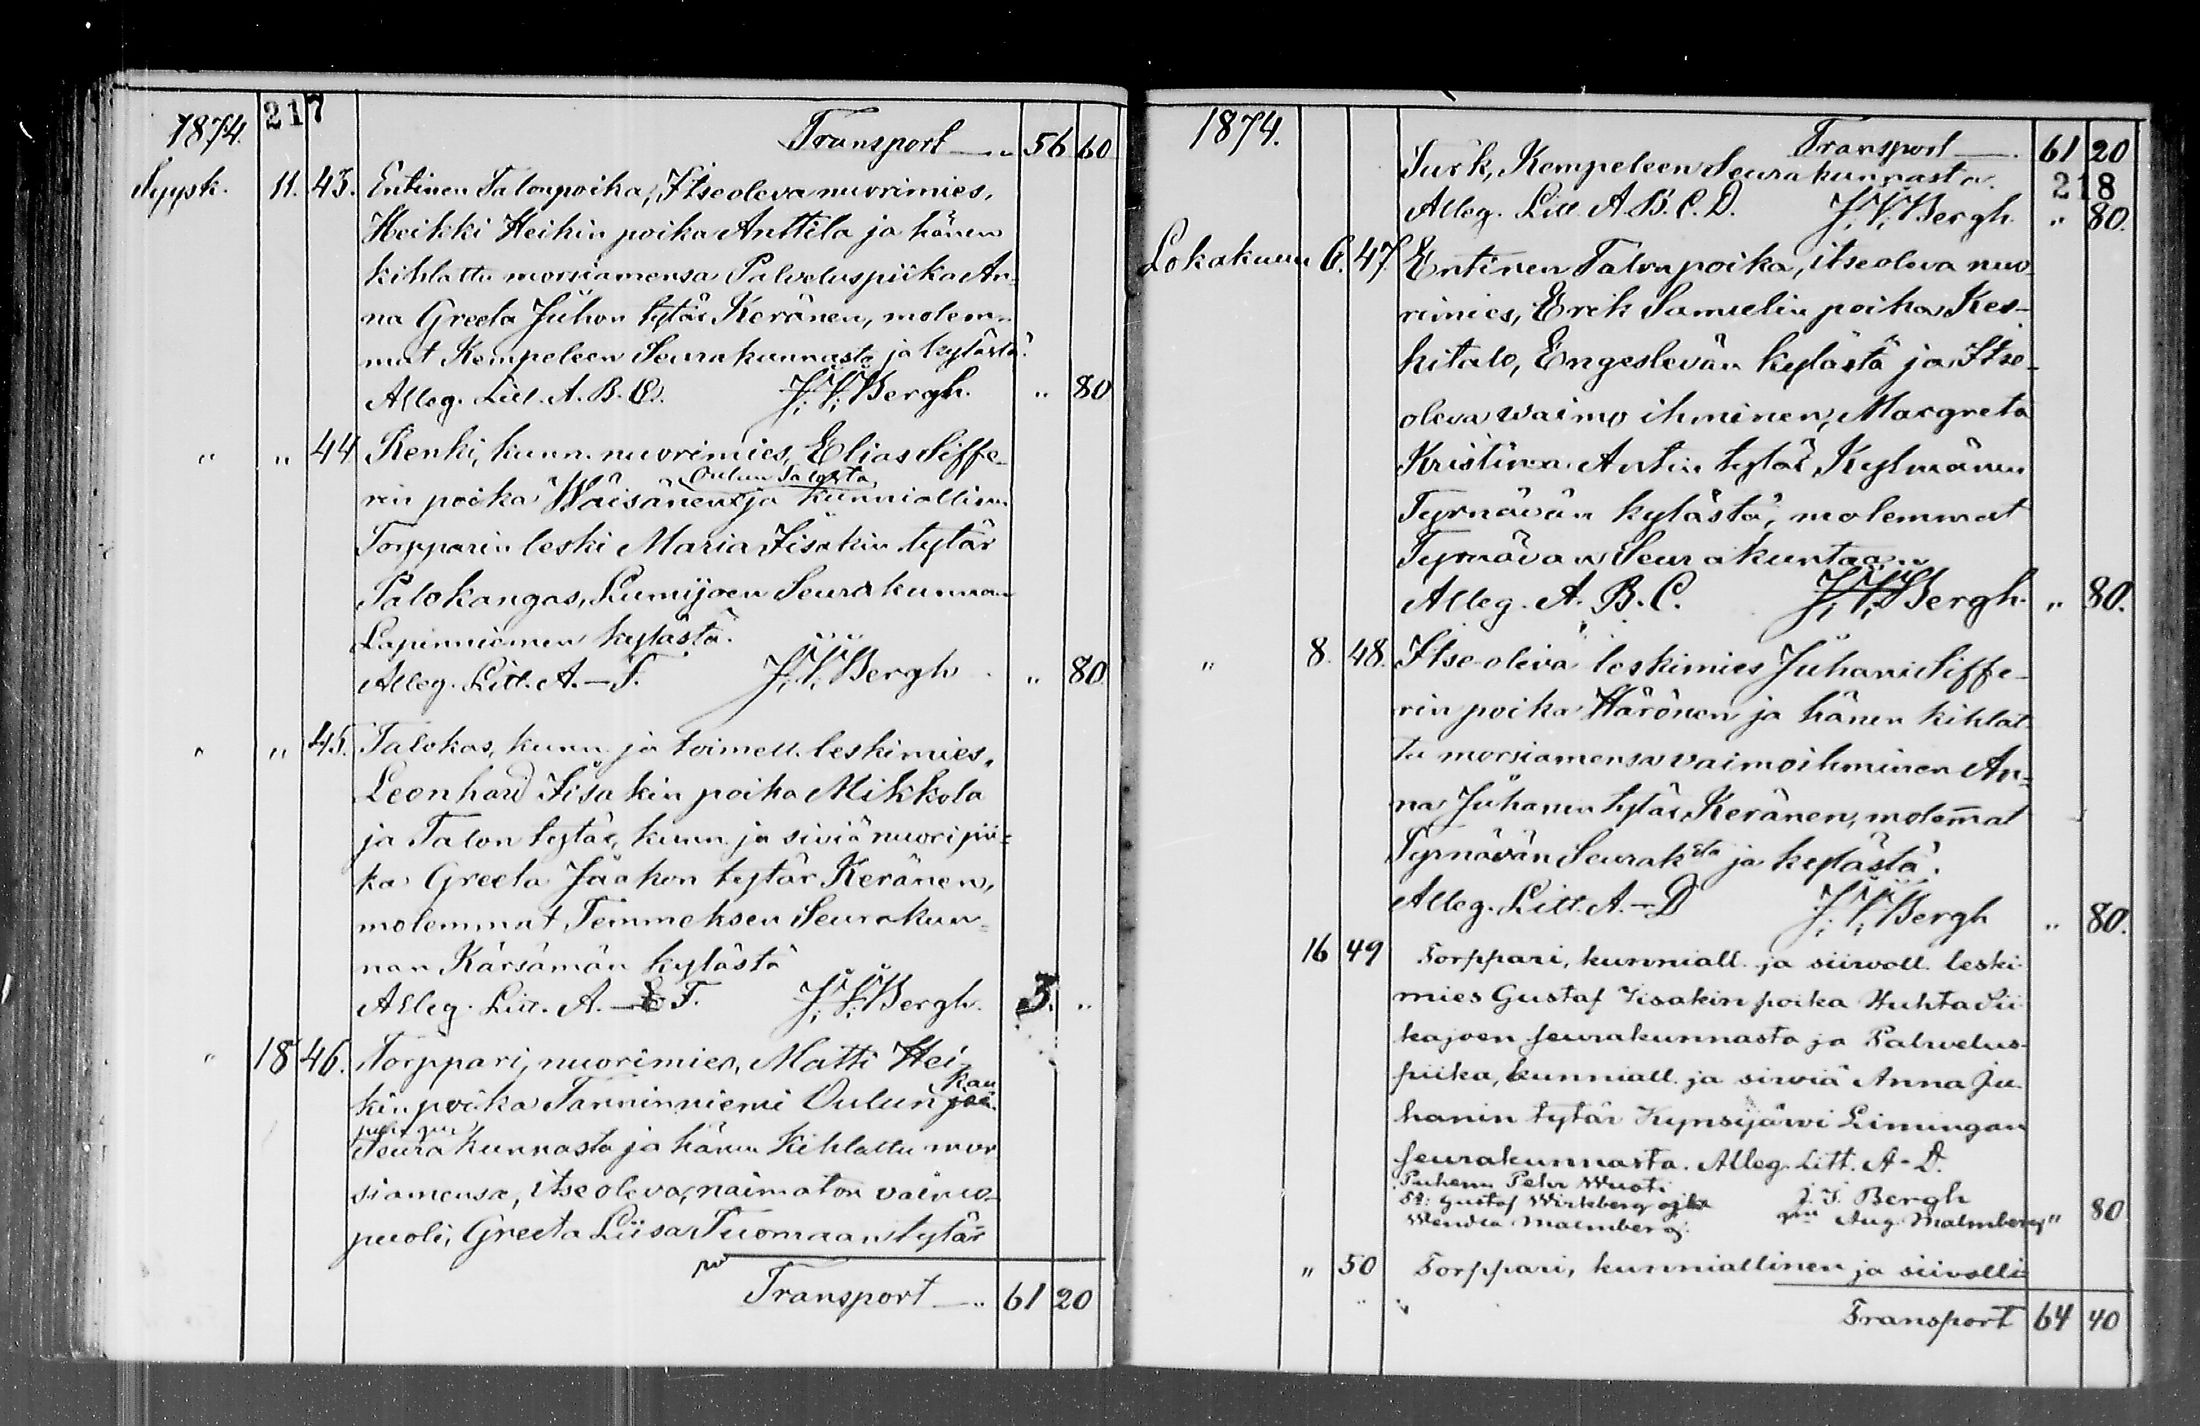 1874. 217
Transport — „ 56 60
Syysk. 11. 43. Entinen Talonpoika, Itseoleva nuorimies,
Heikki Heikin poika Anttila ja hänen
kihlattu morsiamensa Palveluspiika An=
na Greeta Juhon tytär Keränen, molem=
mat Kempeleen Seurakunnasta ja kylästä.
Alleg. Litt. A. B. C. J. V. Bergh. „ 80
„ „ 44 Renki, kunn. nuorimies, Elias Siffe-
Oulun Salosta
rin poika Wäisänen ja kunniallinen
Torpparin leski Maria Iisakin tytär
Palokangas, Lumijoen Seurakunnan
Lapinniemen kylästä.
Alleg. Litt. A.—F. J. V. Bergh „ 80.
„ „ 45. Talokas, kunn. ja toimell. leskimies,
Leonhard Iisakin poika Mikkola
ja Talon tytär, kunn. ja siviä nuori pii=
ka Greeta Jaakon tytär Keränen,
molemmat Temmeksen Seurakun=
nan Kärsämän kylästä
Alleg. Litt. A.— F. J. V. Bergh. 3. „
„ 18 46. Torppari, nuorimies, Matti Hei-
kau
kin poika Tanninniemi Oulun joen
pungin
Seurakunnasta ja hänen Kihlattu mor
siamensa, itseoleva, naimaton vaimo-
puoli, Greeta Liisa Tuomaan tytär
Transport — „ 61 20
1874.
Transport — . 61 20
Turk, Kempeleen Seurakunnasta. 218
Alleg. Litt. A. B. C. D. J. V. Bergh. „ 80.
Lokakuun 6. 47. Entinen Talonpoika, itseoleva nuo-
rimies, Erik Samuelin poika Kes-
kitalo, Engeslevän kylästä ja Itse-
oleva waimo ihminen, Margreta
Kristina Antin tytär, Kylmänen
Tyrnävän kylästä, molemmat
Tyrnävän Seurakuntaan
Alleg. A. B. C. J. V. Bergh. „ 80.
„ 8. 48. Itse-oleva leskimies Juhani Siffe-
rin poika Härönen ja hänen kihlat
tu morsiamensa vaimoihminen An=
na Juhanin tytär, Keränen, molemat
Tyrnävän Seurak:sta ja kylästä.
Alleg. Litt. A.—D J. V. Bergh „ 80.
16 49 Torppari, kunniall. ja siivoll. leski-
mies Gustaf Iisakin poika Huhta Sii-
kajoen seurakunnasta ja Palvelus-
piika, kunniall. ja siiviä Anna Ju-
hanin tytär Kynsijärvi Limingan
seurakunnasta. Alleg. Litt. A-D.
Puhenu Pehr Wuoti
Gustaf Wirkberg J. V. Bergh
Wendla Malmberg. gm Aug. Malmberg „ 80
„ 50 Torppari, kunniallinen ja siivolli=
Transport 64 40